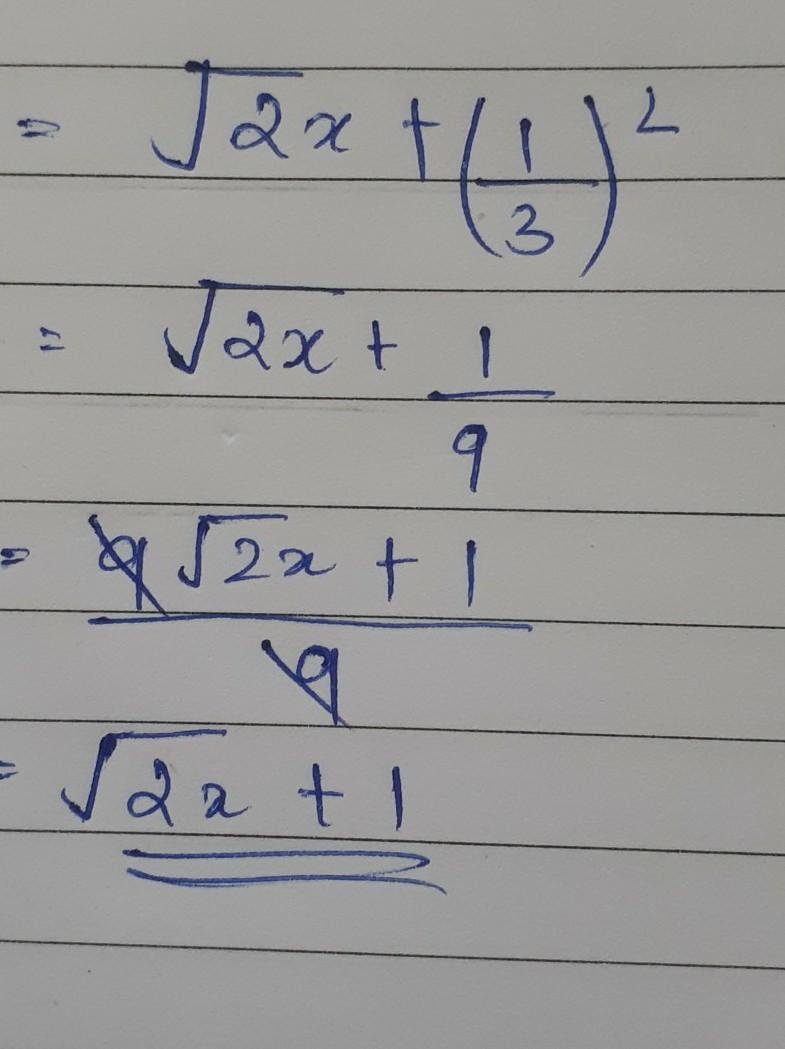 = √2x + (1/3)²
= √2x + 1/9
= 9√2x + 1 / 9
= √2x + 1